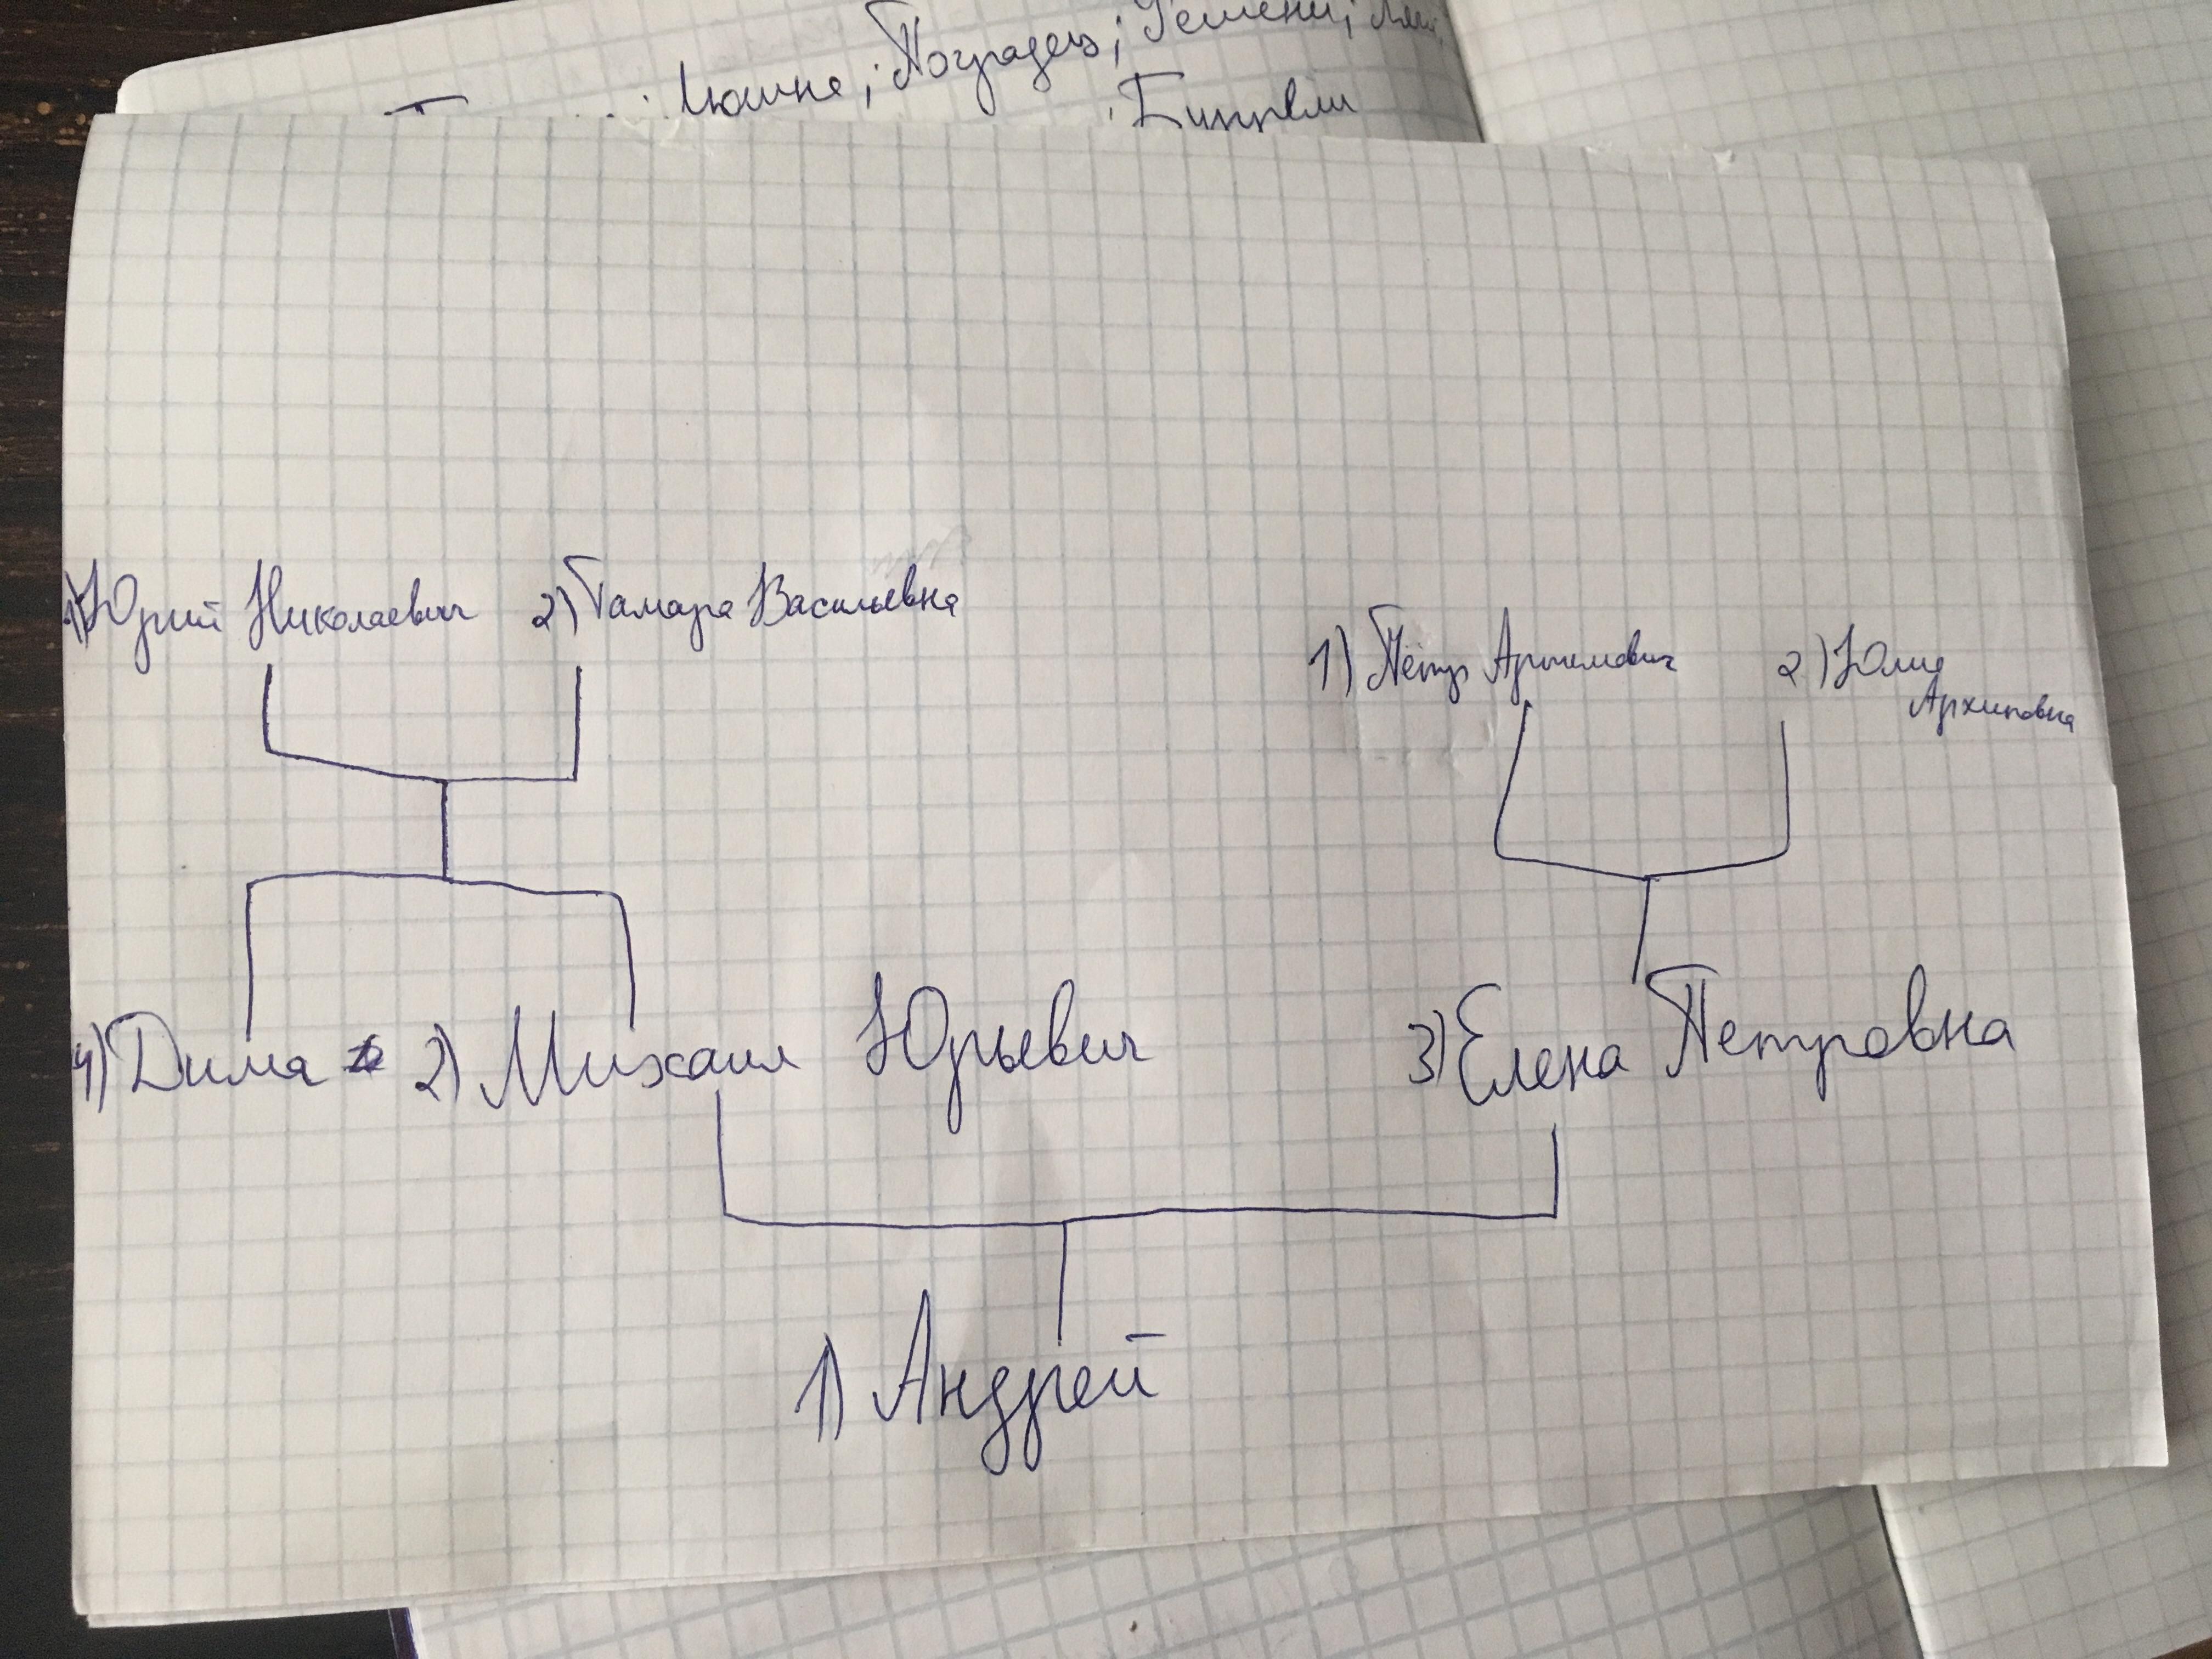 Люшня; Поградец;
1) Юрий Николаевич 2) Тамара Васильевна
1) Пётр Артемович 2) Юлия
Архиповна
4) Дима 2) Михаил Юрьевич 3) Елена Петровна
1) Андрей